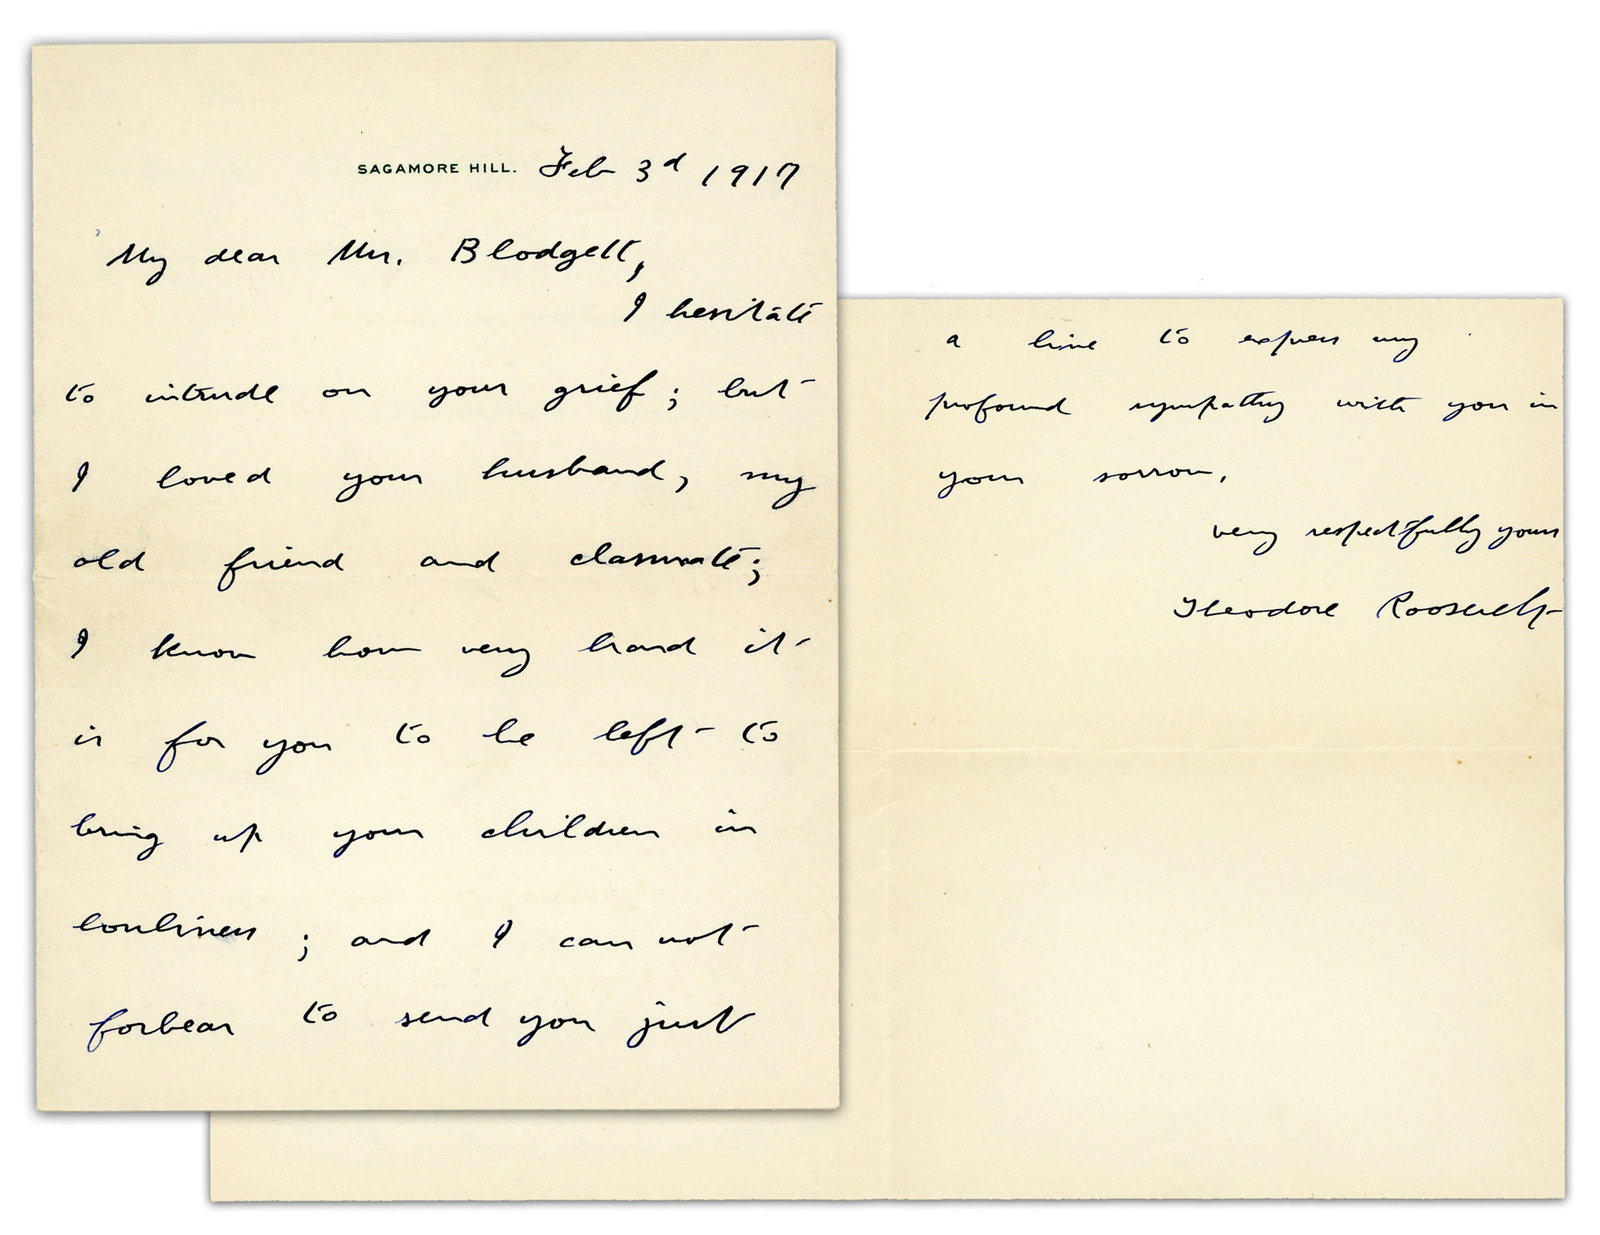 SAGAMORE HILL. Feb 3d 1917
My dear Mrs. Blodgett,
I hesitate
to intrude on your grief; but
I loved your husband, my
old friend and classmate;
I know how very hard it
is for you to be left to
bring up your children in
lonliness; and I can not
forbear to send you just
a line to express my
profound sympathy with you in
your sorrow.
very respectfully yours
Theodore Roosevelt